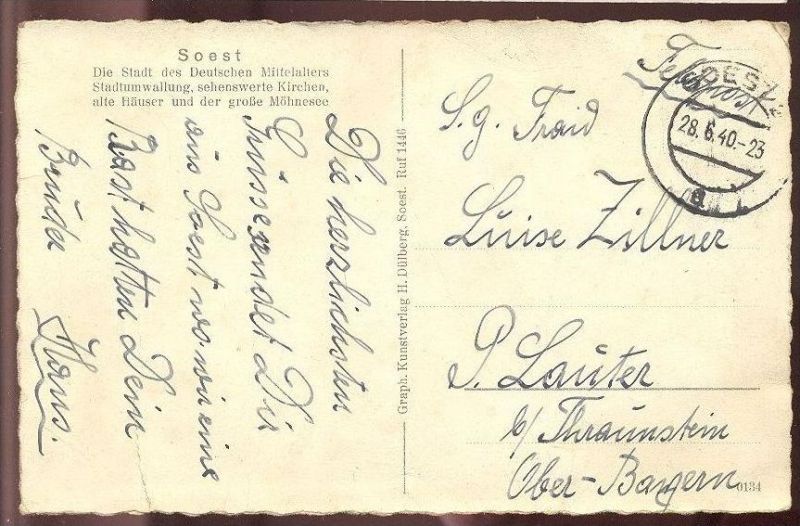 Soest
Die Stadt des Deutschen Mittelalters
Stadtumwallung, sehenswerte Kirchen,
alte Häuser und der große Möhnesee
Die herzlichsten
Grüsse sendet Dir
aus Soest wo wir eine
Rast hatten Dein
Bruder Hans.
Graph. Kunstverlag H. Dülberg, Soest. Ruf 1446
Feldpost
SOEST
28.6.40-23
a
S. g. Fraid
Luise Zillner
P. Lauter
b/ Thraunstein
Ober-Bayern
0134